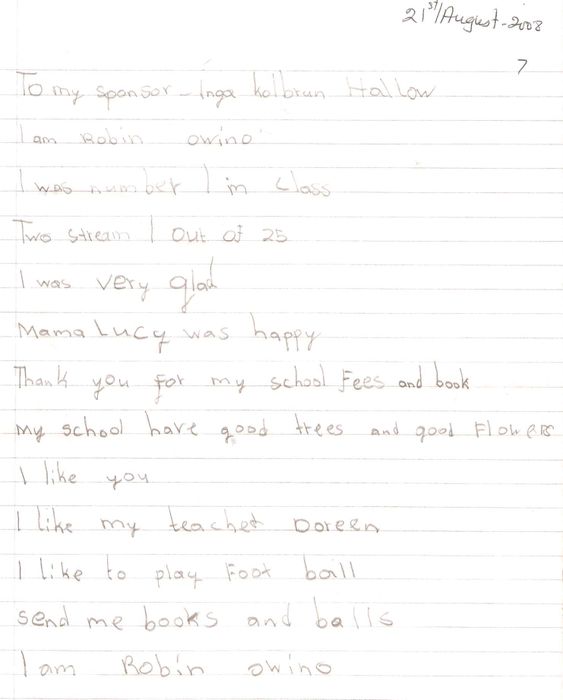 21st/August-2008
7
To my sponsor - Inga kolbrun Hallow
I am Robin owino
I was number 1 in class
Two stream 1 out of 25
I was very glad
Mama Lucy was happy
Thank you for my school Fees and book
My school have good trees and good Flowers
I like you
I like my teacher Doreen
I like to play Foot ball
send me books and balls
I am Robin owino